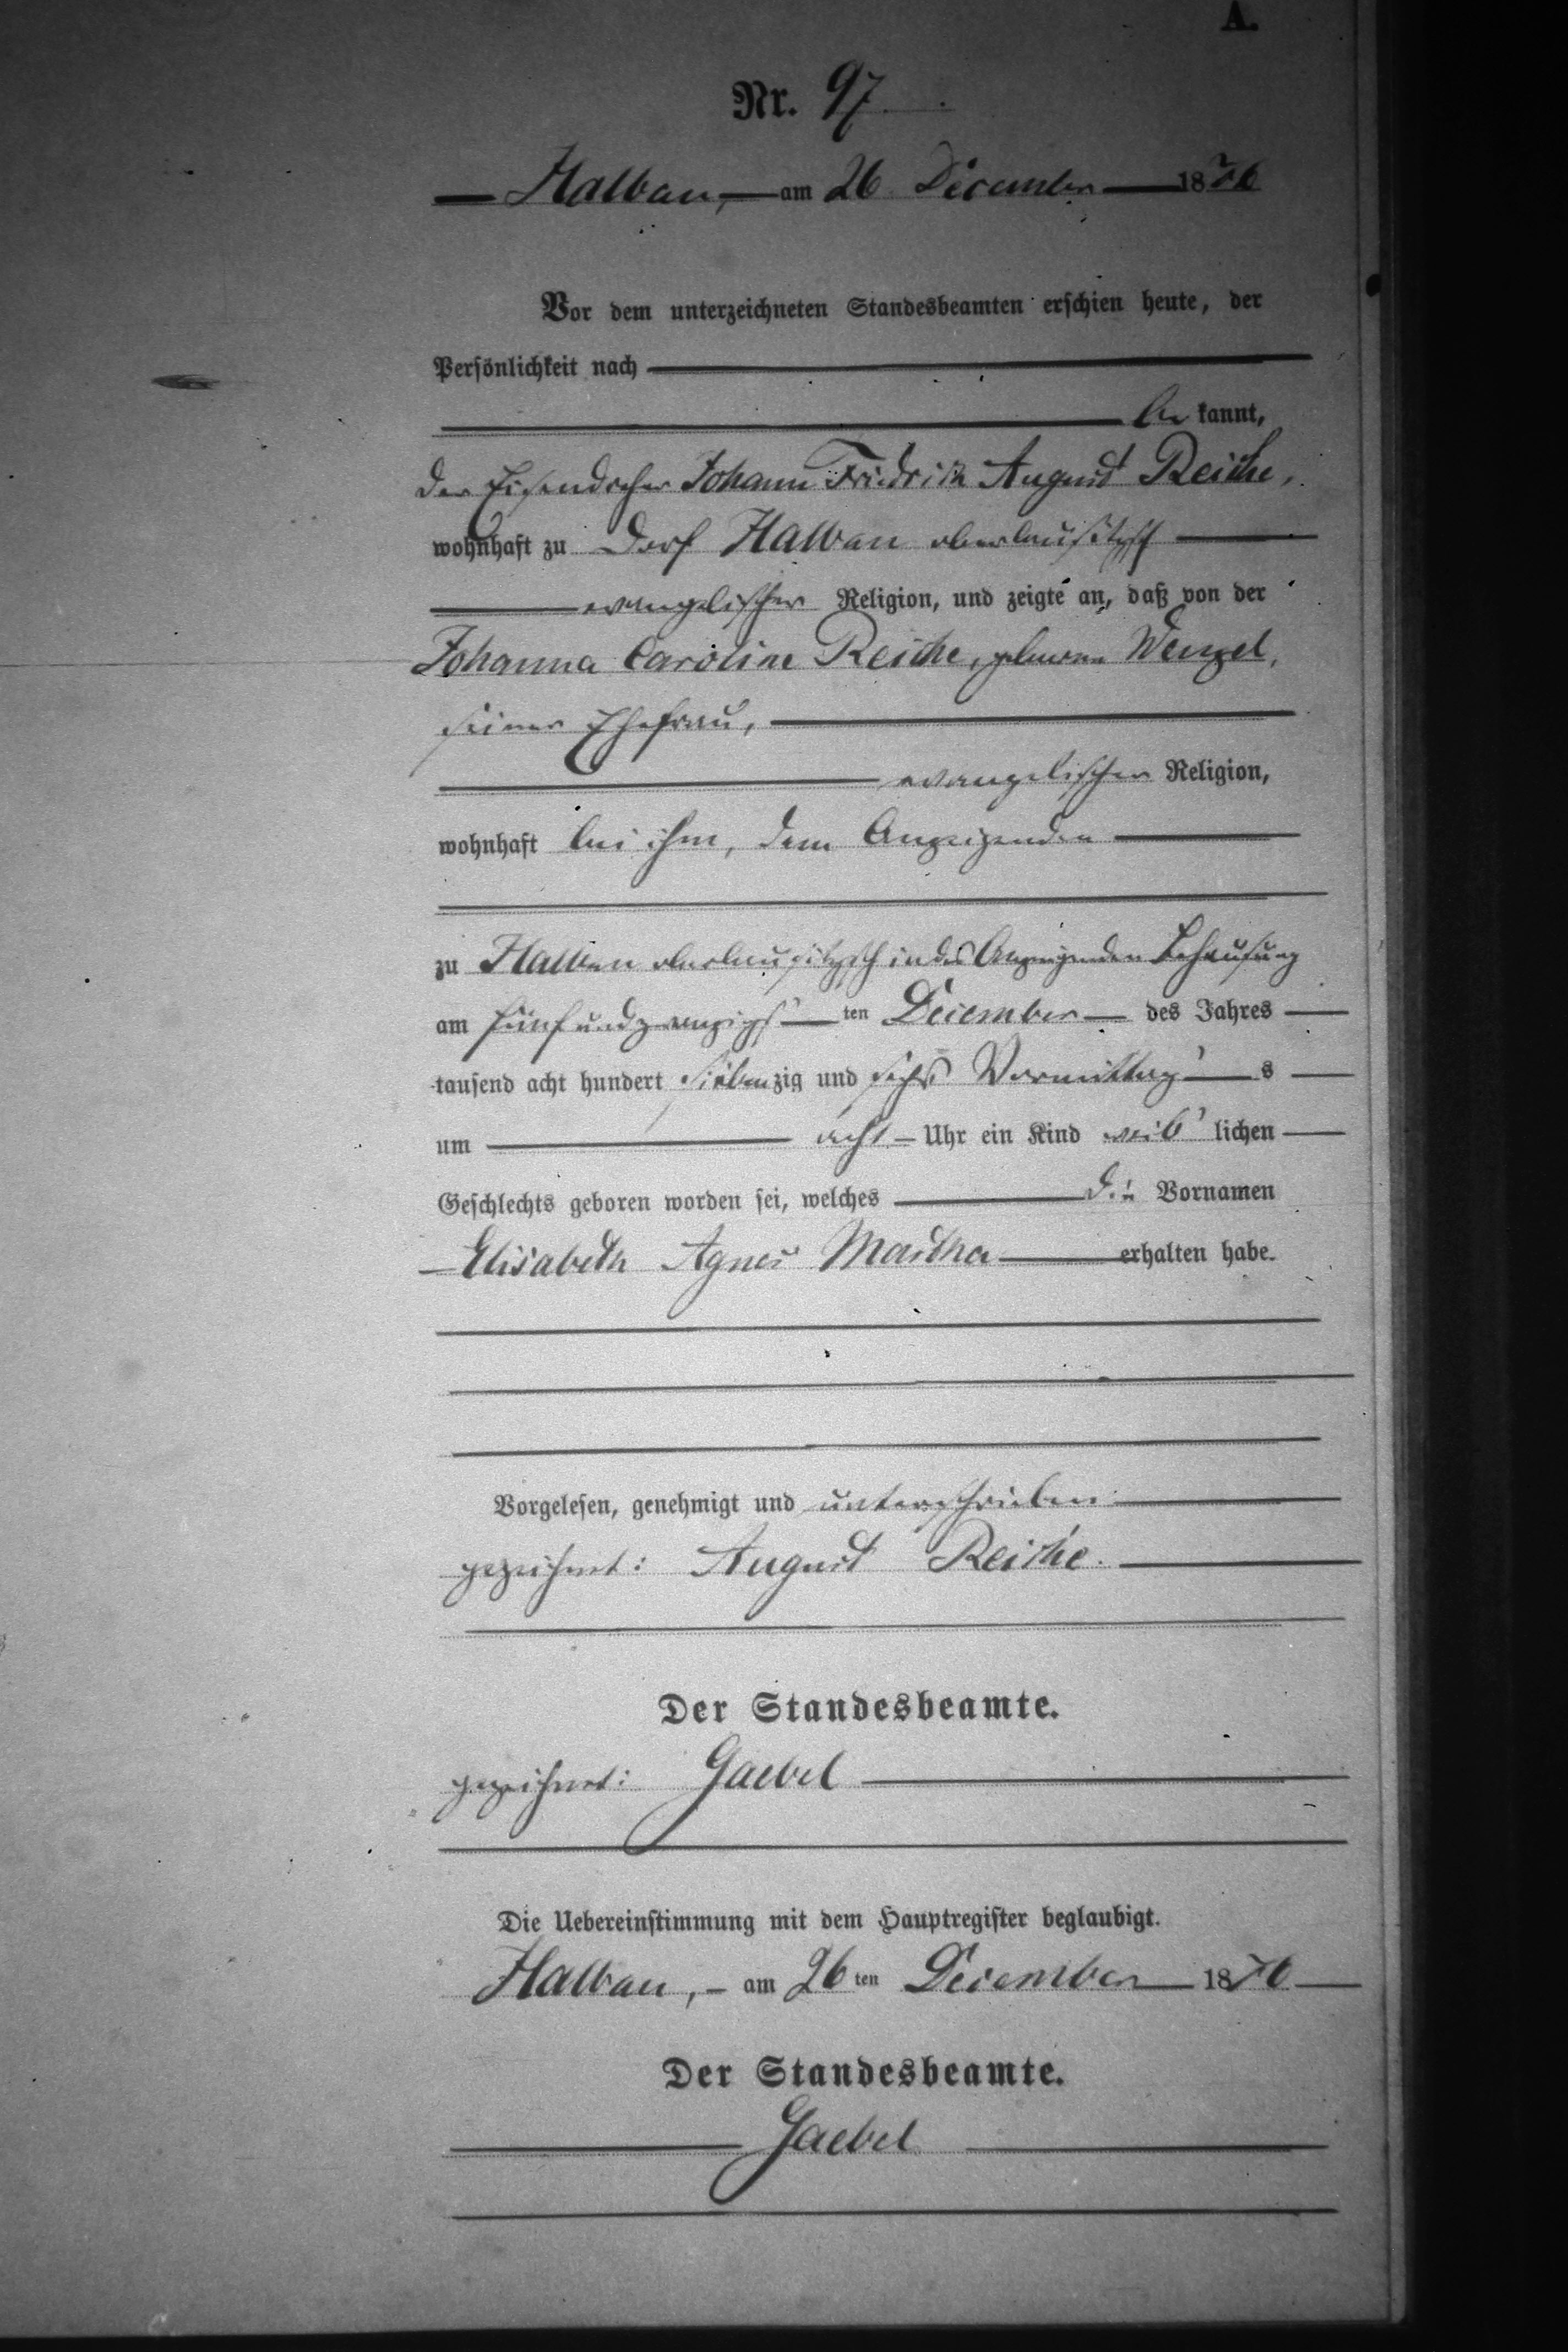 A.
Nr. 97
Halbau, am 26 December 1876
Vor dem unterzeichneten Standesbeamten erschien heute, der
Persönlichkeit nach
be kannt,
der Eisendreher Johann Friedrich August Reiche,
wohnhaft zu Dorf Halbau oberlausitzsch
evangelischer Religion, und zeigte an, daß von der
Johanna Caroline Reiche, geborne Wenzel,
seiner Ehefrau,
evangelischer Religion,
wohnhaft bei ihm, dem Anzeigenden
zu Halbau oberlausitzsch in des Anzeigenden Behausung
am fünfundzwanzigs ten December des Jahres
tausend acht hundert siebenzig und sechs Vormittag s
um acht Uhr ein Kind weib lichen
Geschlechts geboren worden sei, welches die Vornamen
Elisabeth Agnes Martha erhalten habe.
Vorgelesen, genehmigt und unterschrieben
gezeichnet: August Reiche.
Der Standesbeamte.
gezeichnet: Gaebel
Die Uebereinstimmung mit dem Hauptregister beglaubigt.
Halbau, am 26 ten December 1876
Der Standesbeamte.
Gaebel